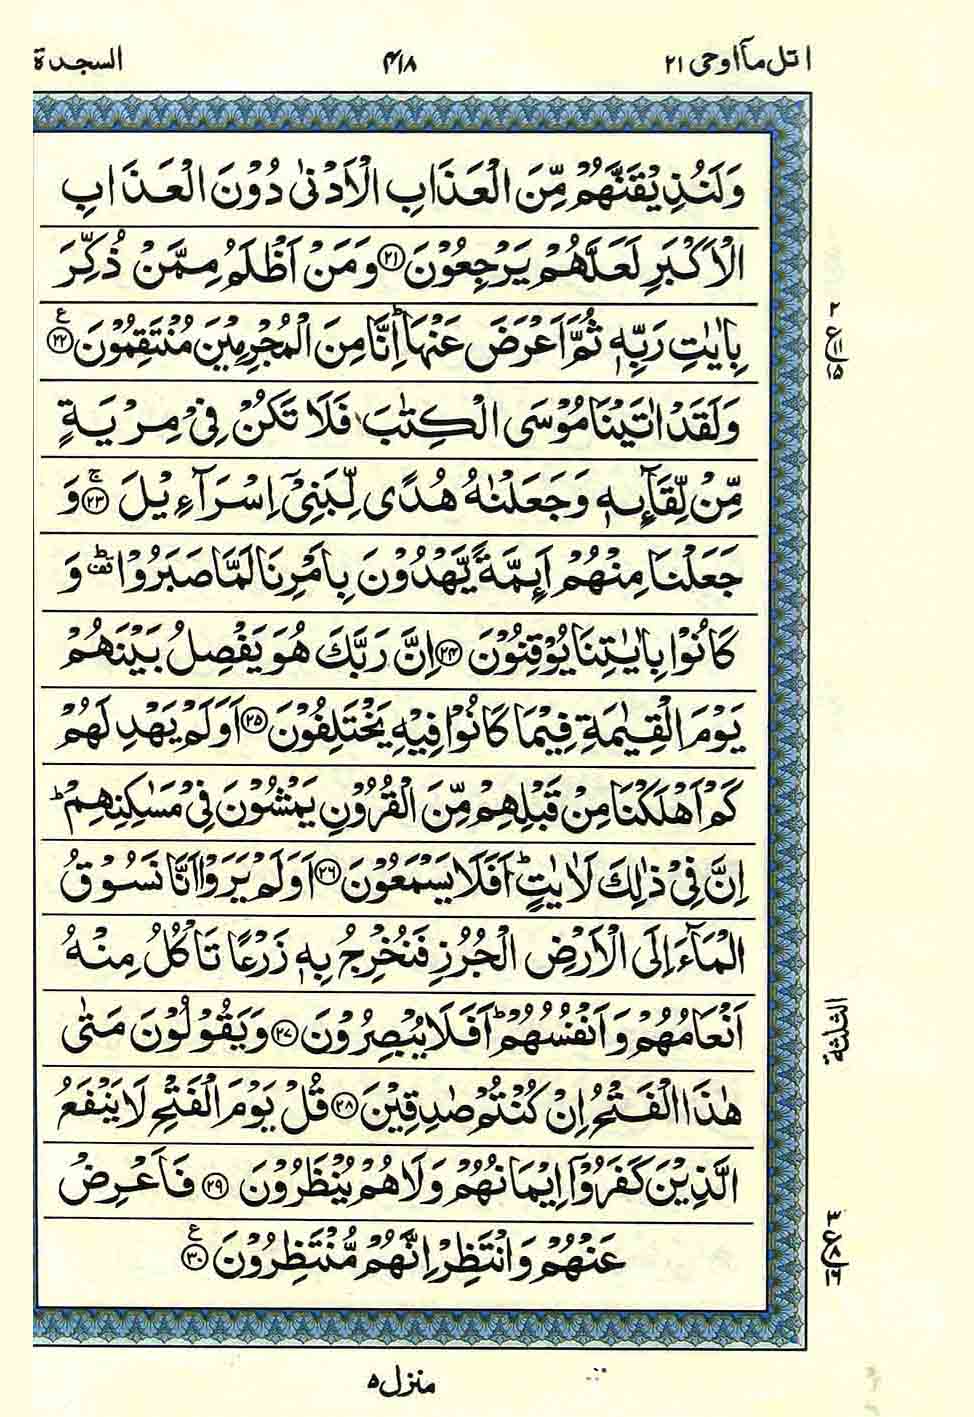 اتل مآاوحی ۲۱
۴۱۸
السجدة
وَلَنُذِيْقَنَّهُمْ مِّنَ الْعَذَابِ الْاَدْنٰى دُوْنَ الْعَذَابِ
الْاَكْبَرِ لَعَلَّهُمْ يَرْجِعُوْنَ ﴿۲۱﴾ وَمَنْ اَظْلَمُ مِمَّنْ ذُكِّرَ
بِاٰيٰتِ رَبِّهٖ ثُمَّ اَعْرَضَ عَنْهَا ؕ اِنَّا مِنَ الْمُجْرِمِيْنَ مُنْتَقِمُوْنَ ﴿۲۲﴾ ع
وَلَقَدْ اٰتَيْنَا مُوْسَى الْكِتٰبَ فَلَا تَكُنْ فِيْ مِرْيَةٍ
مِّنْ لِّقَآىِٕهٖ وَجَعَلْنٰهُ هُدًى لِّبَنِيْٓ اِسْرَآءِيْلَ ﴿۲۳﴾ ۚ وَ
جَعَلْنَا مِنْهُمْ اَىِٕمَّةً يَّهْدُوْنَ بِاَمْرِنَا لَمَّا صَبَرُوْا ؕ۫ وَ
كَانُوْا بِاٰيٰتِنَا يُوْقِنُوْنَ ﴿۲۴﴾ اِنَّ رَبَّكَ هُوَ يَفْصِلُ بَيْنَهُمْ
يَوْمَ الْقِيٰمَةِ فِيْمَا كَانُوْا فِيْهِ يَخْتَلِفُوْنَ ﴿۲۵﴾ اَوَلَمْ يَهْدِ لَهُمْ
كَمْ اَهْلَكْنَا مِنْ قَبْلِهِمْ مِّنَ الْقُرُوْنِ يَمْشُوْنَ فِيْ مَسٰكِنِهِمْ ؕ
اِنَّ فِيْ ذٰلِكَ لَاٰيٰتٍ ؕ اَفَلَا يَسْمَعُوْنَ ﴿۲۶﴾ اَوَلَمْ يَرَوْا اَنَّا نَسُوْقُ
الْمَآءَ اِلَى الْاَرْضِ الْجُرُزِ فَنُخْرِجُ بِهٖ زَرْعًا تَاْكُلُ مِنْهُ
اَنْعَامُهُمْ وَاَنْفُسُهُمْ ؕ اَفَلَا يُبْصِرُوْنَ ﴿۲۷﴾ وَيَقُوْلُوْنَ مَتٰى
هٰذَا الْفَتْحُ اِنْ كُنْتُمْ صٰدِقِيْنَ ﴿۲۸﴾ قُلْ يَوْمَ الْفَتْحِ لَا يَنْفَعُ
الَّذِيْنَ كَفَرُوْٓا اِيْمَانُهُمْ وَلَا هُمْ يُنْظَرُوْنَ ﴿۲۹﴾ فَاَعْرِضْ
عَنْهُمْ وَانْتَظِرْ اِنَّهُمْ مُّنْتَظِرُوْنَ ﴿۳۰﴾ ع
۲
ع ۱۱
۱۵
الثلثة
۳
ع ۸
۱۶
منزل ۵